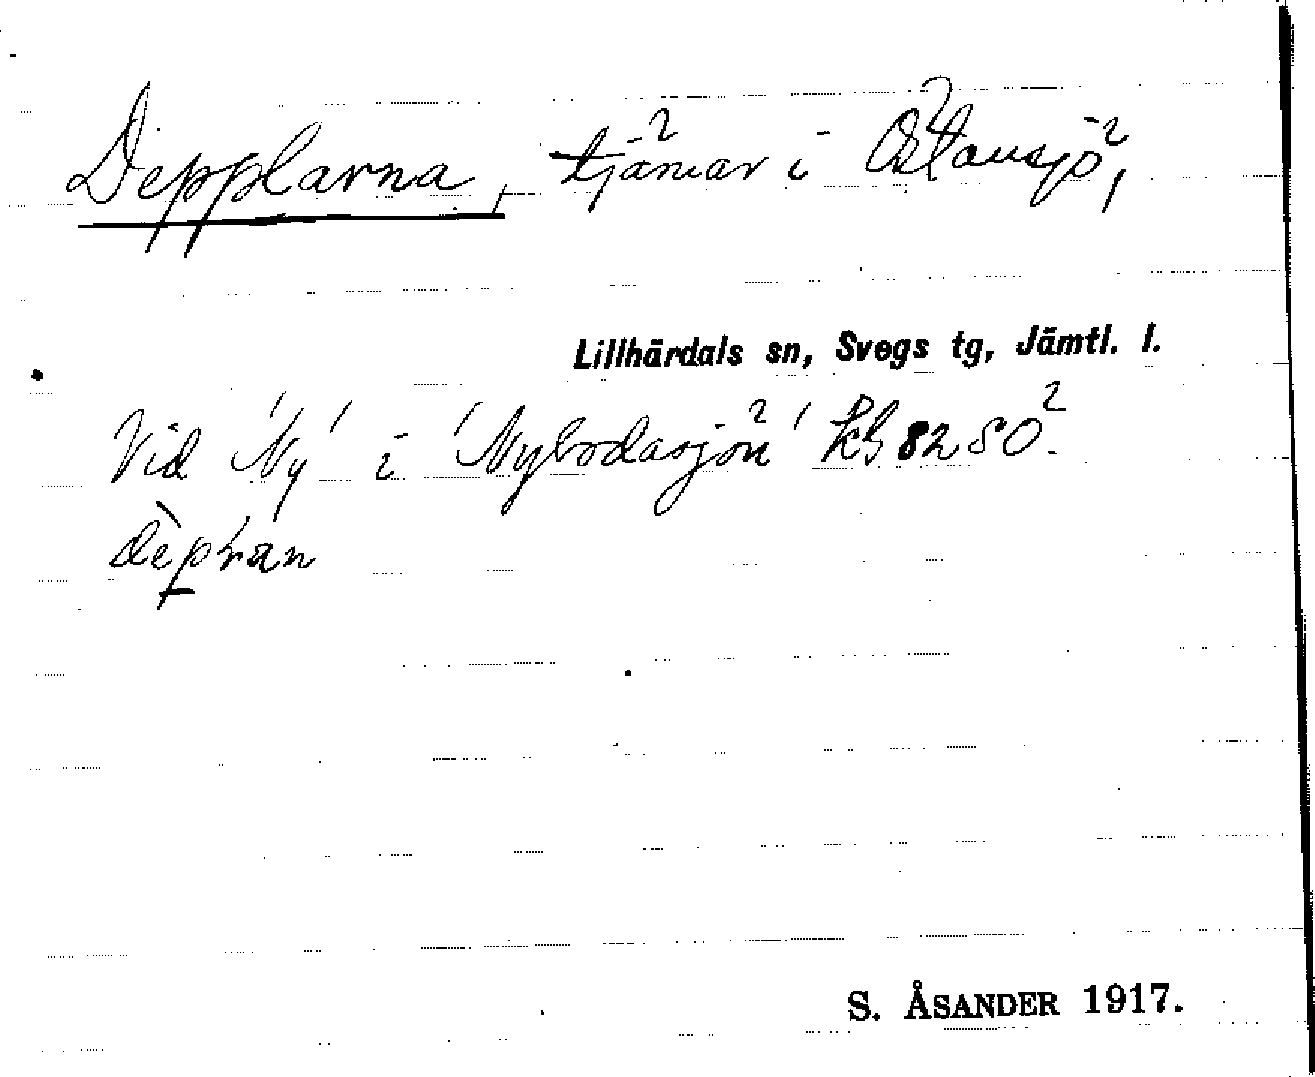 Depplarna, tjärnar i Östansjö,
Lillhärdals sn, Svegs tg, Jämtl. l.
Vid 'Ny' i 'Nybodasjön' kS 82 SO.
S. ÅSANDER 1917.